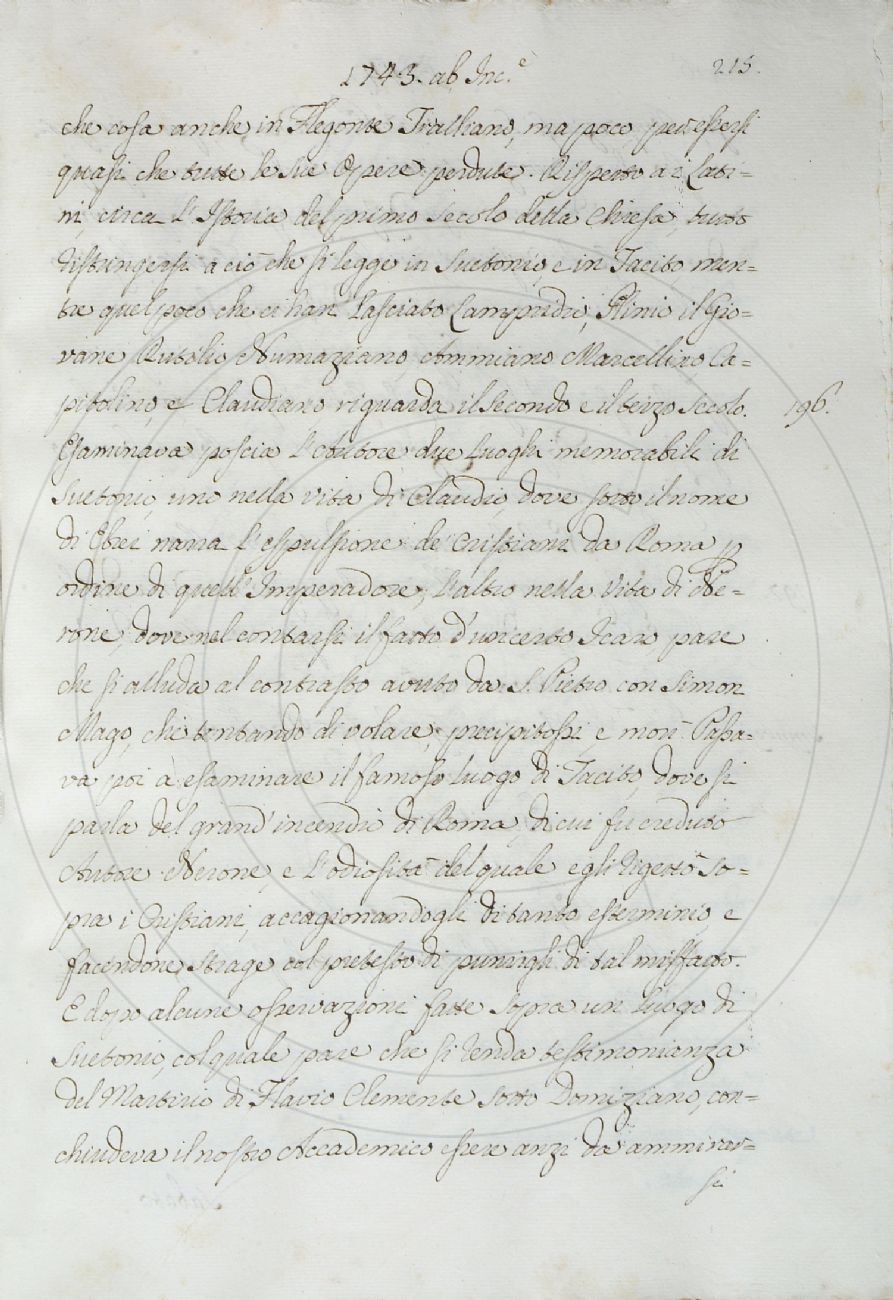 1743. ab Inc.e 215.
che cosa anche in Flegonte Tralliano, ma poco, per essersi
quasi che tutte le sue Opere perdute. Rispetto ai Lati=
ni, circa l'Istoria del primo secolo della Chiesa, tutto
ristringersi a ciò che si legge in Suetonio, e in Tacito, men=
tre quel poco che ci han' lasciato Lampridio, Plinio il Gio=
vane Rutilio Numaziano Ammiano Marcellino Ca=
pitolino, e Claudiano riguarda il secondo e il terzo secolo. 196.
Esaminava poscia l'Autore due luoghi memorabili di
Suetonio, uno nella vita di Claudio, dove sotto il nome
di Ebrei narra l'espulsione de' Cristiani da Roma p
ordine di quell'Imperadore, l'altro nella Vita di Ne=
rone, dove nel contarsi il fatto d'un certo Icaro pare
che si alluda al contrasto avuto da S. Pietro con Simon
Mago, che tentando di volare, precipitossi, e morì. Passa=
va poi à esaminare il famoso luogo di Tacito dove si
parla del grand'incendio di Roma, di cui fu creduto
Autore Nerone, e l'odiosità del quale egli rigettò so=
pra i Cristiani, accagionandogli di tanto esterminio, e
facendone strage col pretesto di punirgli di tal misfatto.
E dopo alcune osservazioni fatte sopra un luogo di
Suetonio, col quale pare che si renda testimonianza
del Martirio di Flavio Clemente sotto Domiziano, con=
chiudeva il nostro Accademico essere anzi da ammirar=
si